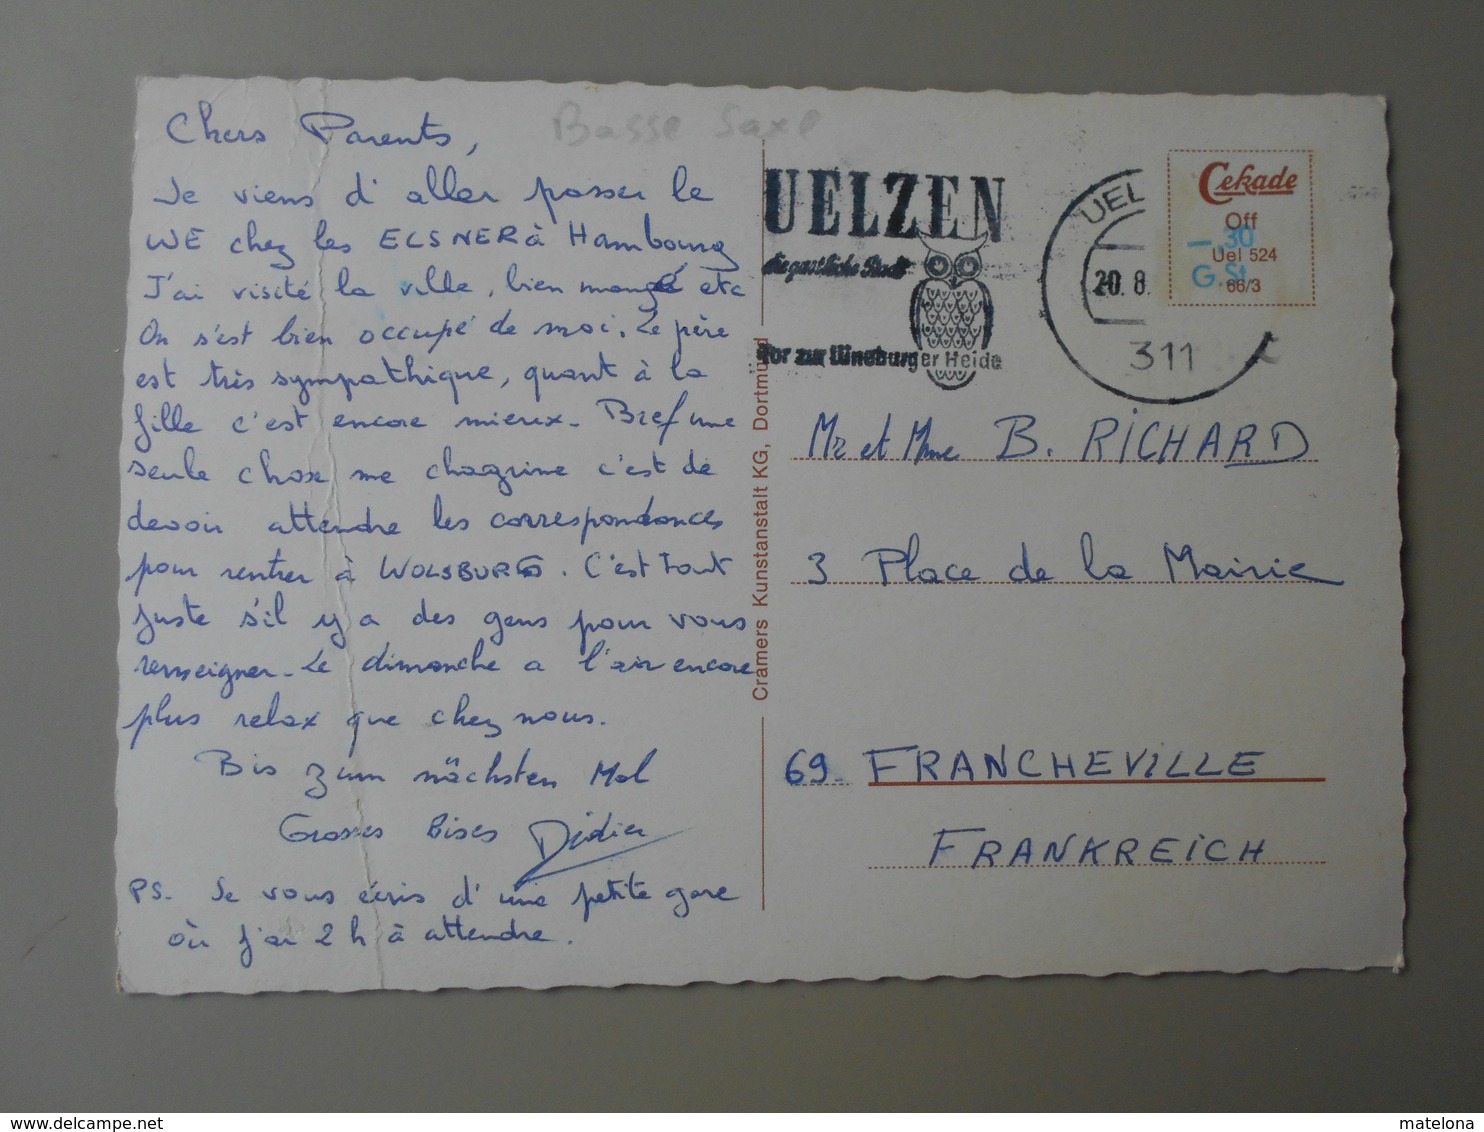 Basse Saxe
Chers Parents,
Je viens d'aller passer le
WE chez les ELSNER à Hambourg
J'ai visité la ville, bien mangé etc
On s'est bien occupé de moi. Le père
est très sympathique, quant à la
fille c'est encore mieux. Bref une
seule chose me chagrine c'est de
devoir attendre les correspondances
pour rentrer à WOLSBURG. C'est tout
juste s'il y a des gens pour vous
renseigner. Le dimanche a l'air encore
plus relax que chez nous.
Bis zum nächsten Mal
Grosses bises Didier
PS. Je vous écris d'une petite gare
où j'ai 2 h à attendre.
Cramers Kunstanstalt KG, Dortmund
UELZEN
die gastliche Stadt
Tor zur Lüneburger Heide
UEL
20.8.
311
Cekade
Off
-.30
Uel 524
G.St.
66/3
Mr et Mme B. RICHARD
3 Place de la Mairie
69 FRANCHEVILLE
FRANKREICH
http://www.delcampe.net
matelona